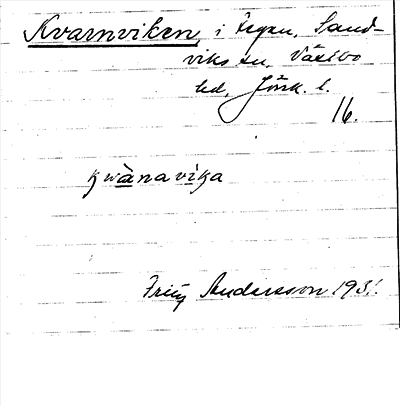 Kvarnviken, i Fegen, Sand-
viks sn, Västbo
hd, Jönk. l.
16.
kwànavika
Fritz Andersson 1931.